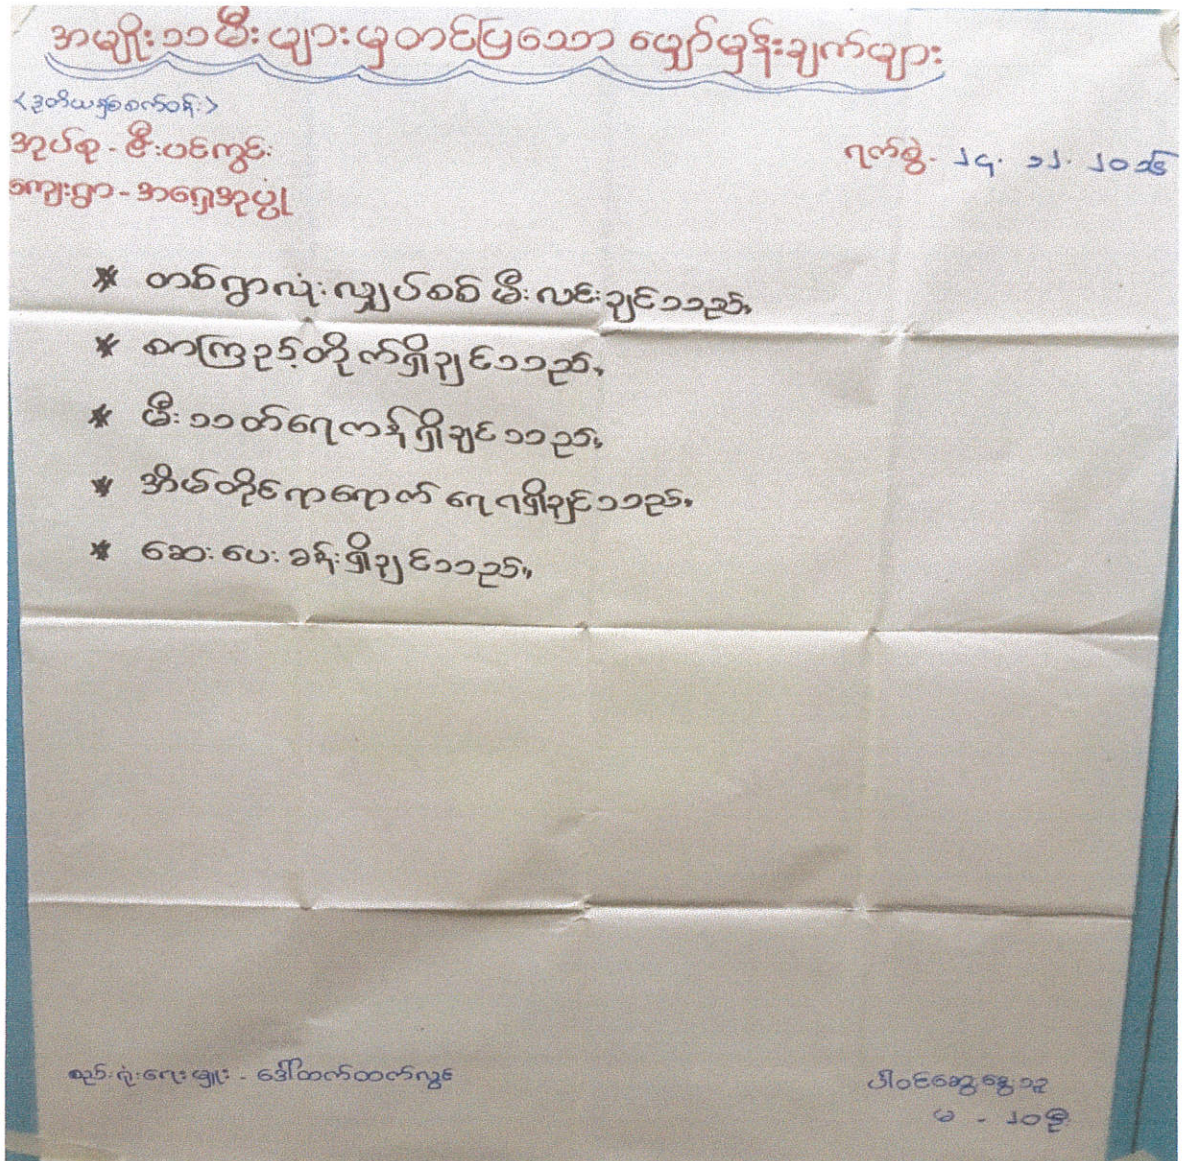 အမျိုးသမီးများမှတင်ပြသော မျှော်မှန်းချက်များ
<ဒုတိယနှစ်စက်ဝန်း>
အုပ်စု - ဇီးပင်ကွင်း
ရက်စွဲ - ၂၄. ၁၂. ၂၀၁၆
ကျေးရွာ - အရှေ့အုပ်ပုံ
* တစ်ရွာလုံးလျှပ်စစ်မီးလင်းချင်သည်။
* စာကြည့်တိုက်ရှိချင်သည်။
* မီးသတ်ရေကန်ရှိချင်သည်။
* အိမ်တိုင်ရာရောက် ရေရရှိချင်သည်။
* ဆေးပေးခန်းရှိချင်သည်။
စည်းရုံးရေးမှူး - ဒေါ်ထက်ထက်လွင်
ပါဝင်ဆွေးနွေးသူ
မ - ၂၀ဦး